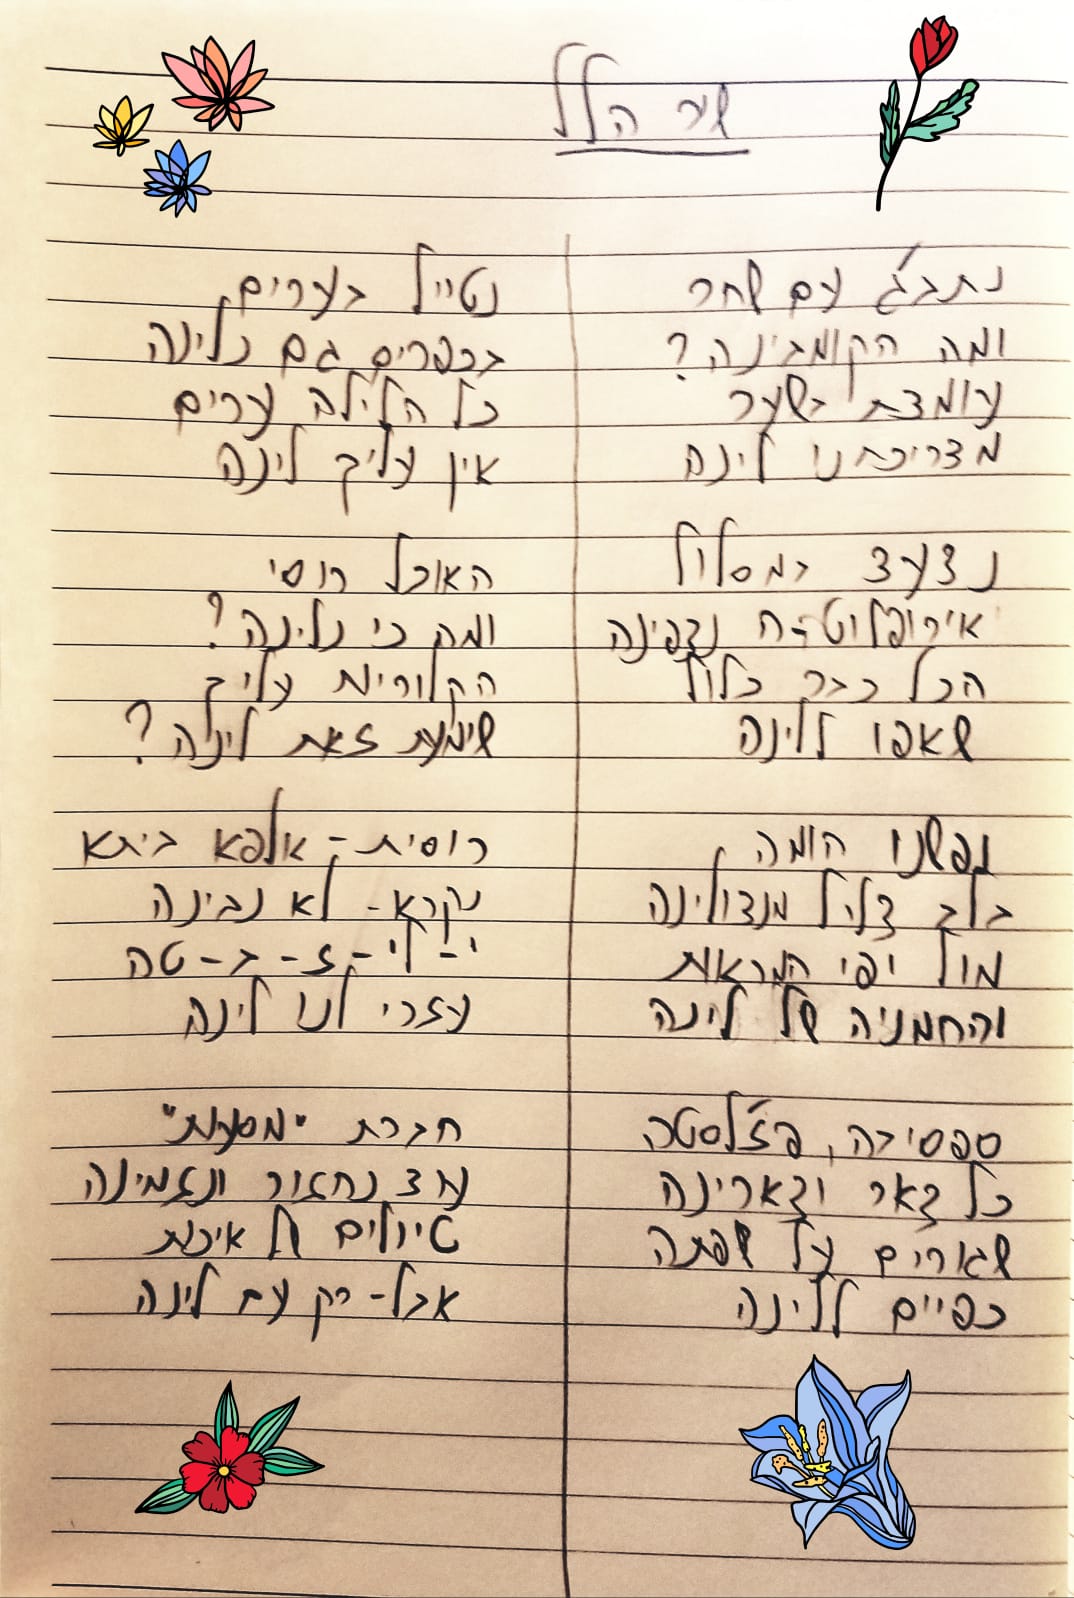 שיר הלל
נתבג עם שחר
ומה הקומבינה?
עומדת בשער
מדריכתנו לינה
נצעד במסלול
אירופלוט-ה נצפינה
הכל כבר כלול
שאפו ללינה
נפשנו הומה
בלב צליל מנדולינה
מול יפי המראות
והחמניה של לינה
ספסיבה, פז'לסטה
כל צאר וצארינה
שגורים על שפתה
כפיים ללינה
נטייל בערים
בכפרים גם נלינה
כל הלילה ערים
אין עליך לינה
האוכל רוסי
ומה כי נלינה?
הקלוריות עליך
שימעת זאת לינה?
רוסית - אלפא ביתא
נקרא - לא נבינה
י - לי - ז - ב - טה
עזרי לנו לינה
חברת "מסעות"
נחזור ונזמינה
טיולים של איכות
אבל - רק עם לינה